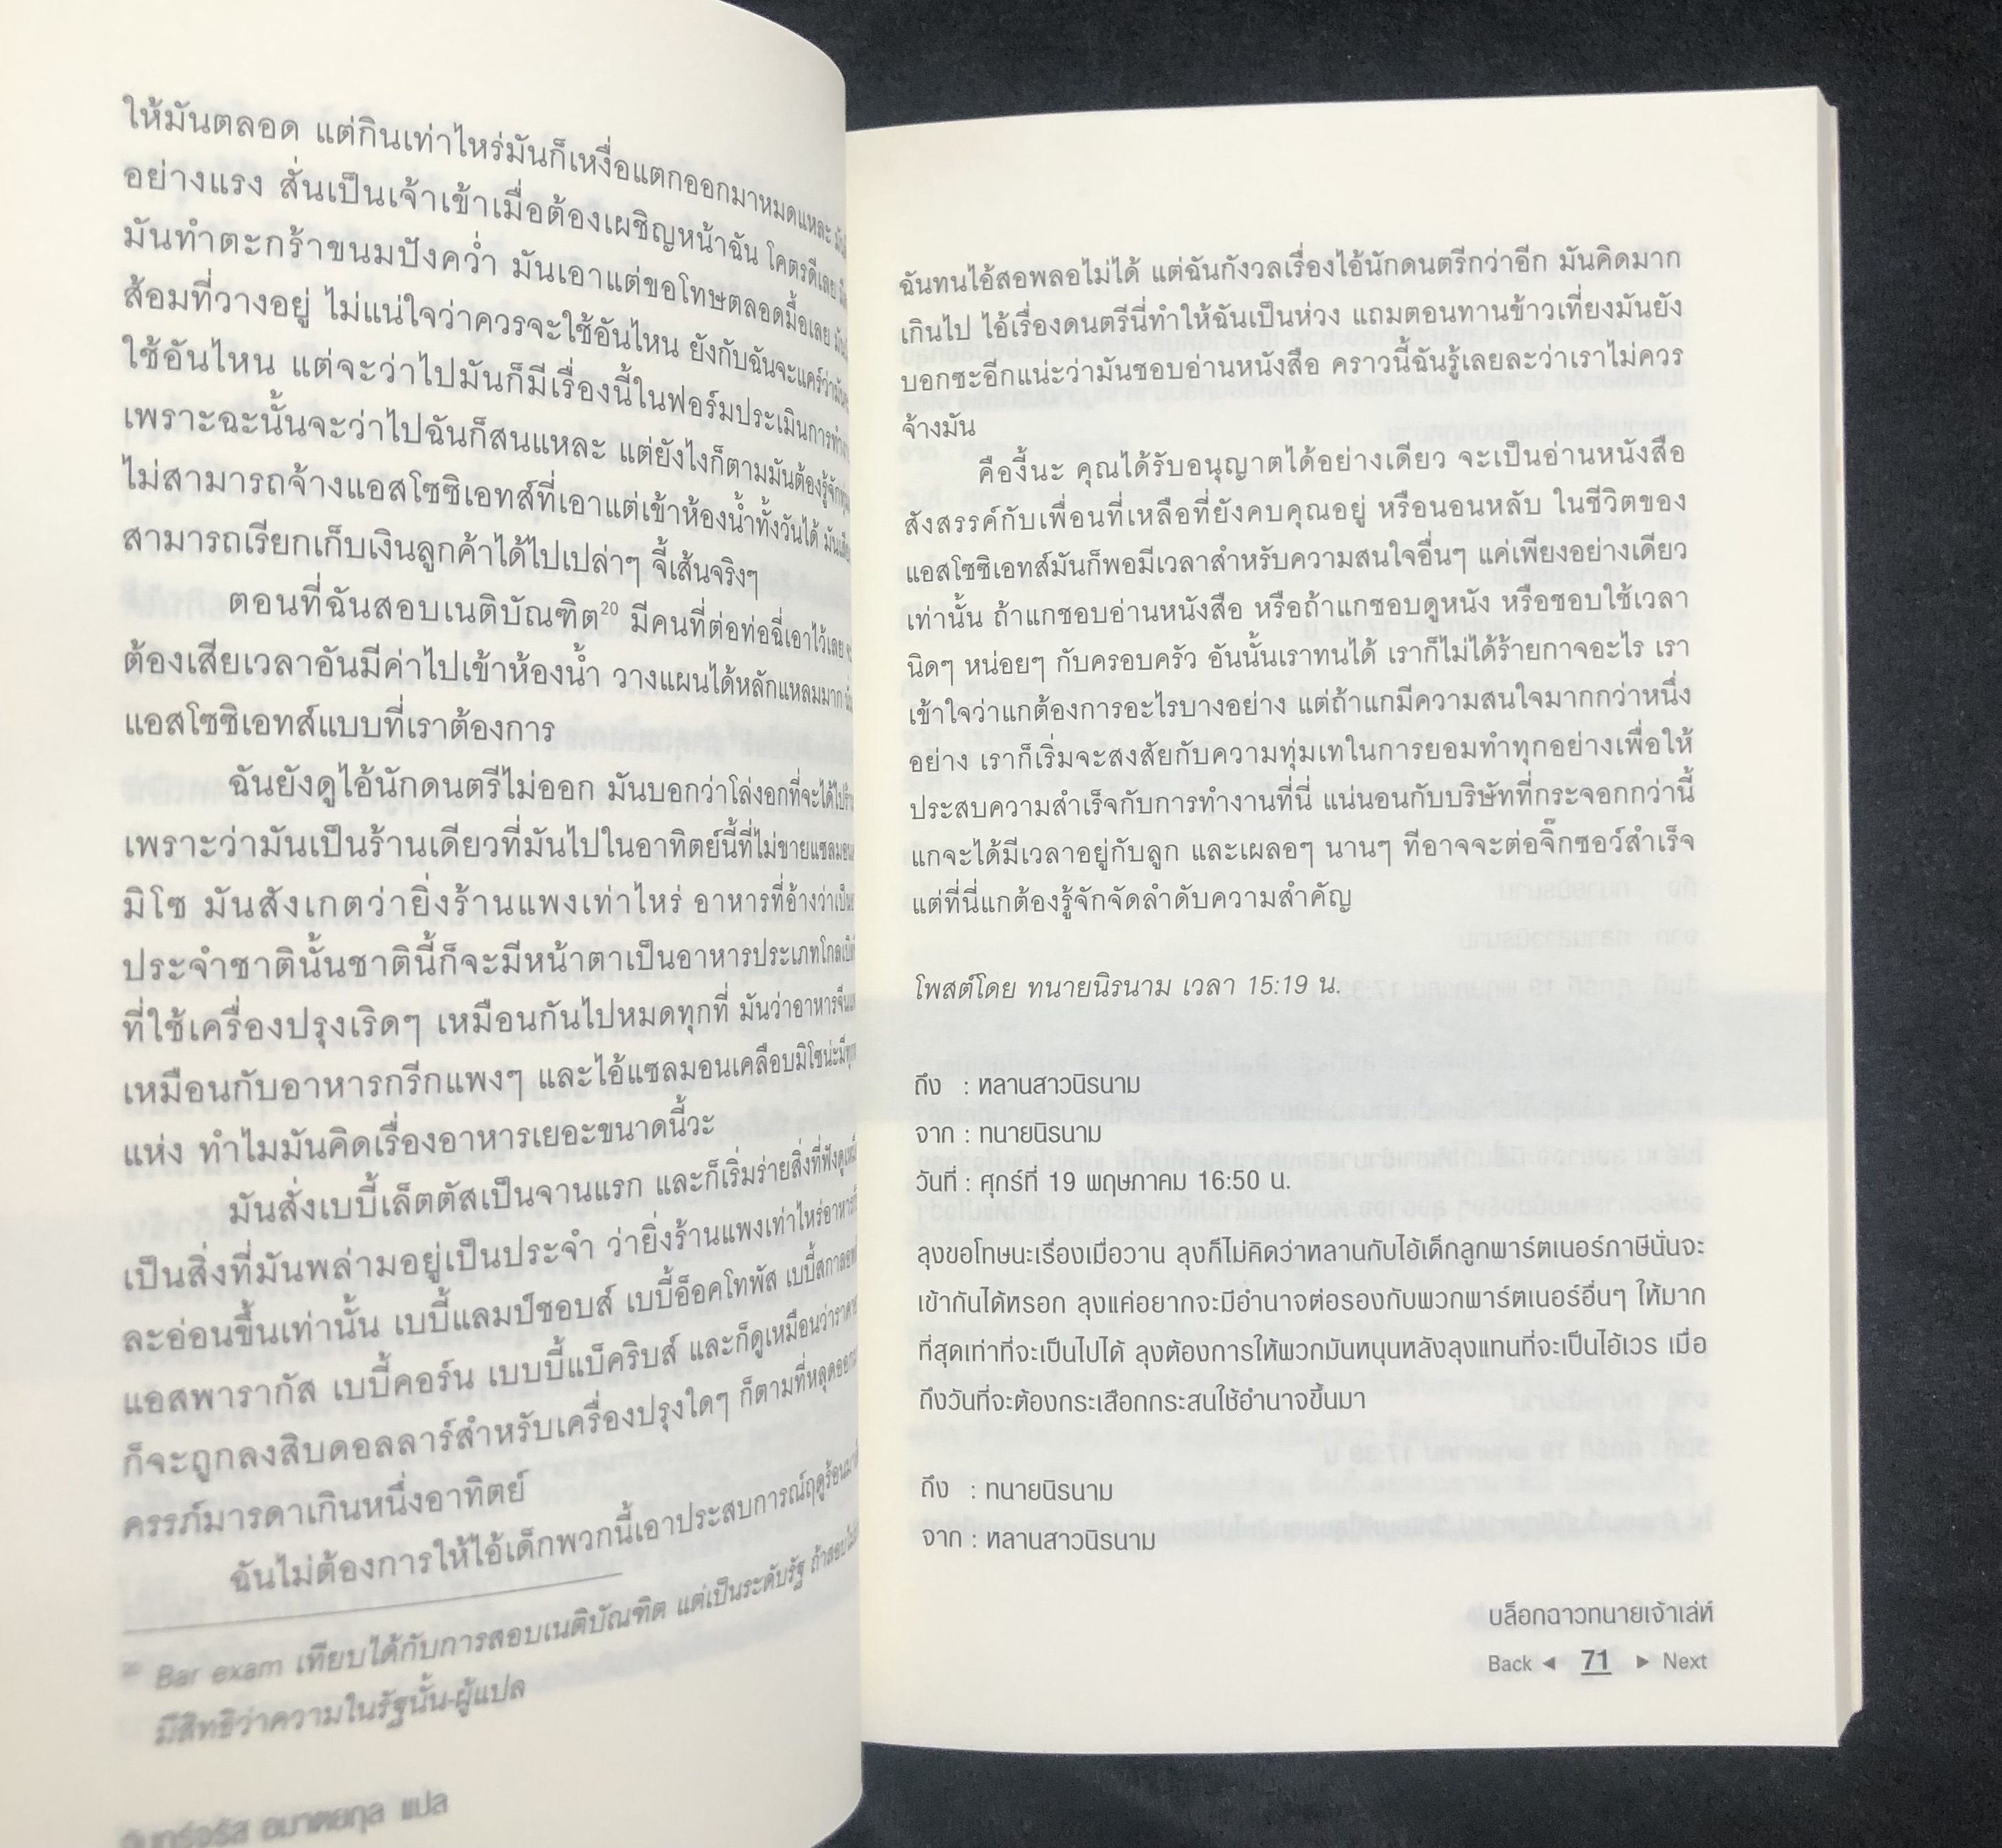 ให้มันตลอด แต่กินเท่าไหร่มันก็เหงื่อแตกออกมาหมดแหละ
อย่างแรง สั่นเป็นเจ้าเข้าเมื่อต้องเผชิญหน้าฉัน โคตรดีเลย
มันทำตะกร้าขนมปังคว่ำ มันเอาแต่ขอโทษตลอดมื้อเลย
ส้อมที่วางอยู่ ไม่แน่ใจว่าควรจะใช้อันไหน ยังกับฉันจะแคร์ว่า
ใช้อันไหน แต่จะว่าไปมันก็มีเรื่องนี้ในฟอร์มประเมินการ
เพราะฉะนั้นจะว่าไปฉันก็สนแหละ แต่ยังไงก็ตามมันต้องรู้จัก
ไม่สามารถจ้างแอสโซซิเอทส์ที่เอาแต่เข้าห้องน้ำทั้งวันได้
สามารถเรียกเก็บเงินลูกค้าได้ไปเปล่าๆ จี้เส้นจริงๆ
ตอนที่ฉันสอบเนติบัณฑิต20 มีคนที่ต่อท่อฉี่เอาไว้เลย
ต้องเสียเวลาอันมีค่าไปเข้าห้องน้ำ วางแผนได้หลักแหลมมาก
แอสโซซิเอทส์แบบที่เราต้องการ
ฉันยังดูไอ้นักดนตรีไม่ออก มันบอกว่าโล่งอกที่จะได้ไป
เพราะว่ามันเป็นร้านเดียวที่มันไปในอาทิตย์นี้ที่ไม่ขายแซลมอน
มิโซ มันสังเกตว่ายิ่งร้านแพงเท่าไหร่ อาหารที่อ้างว่าเป็น
ประจำชาตินั้นชาตินี้ก็จะมีหน้าตาเป็นอาหารประเภท
ที่ใช้เครื่องปรุงเริดๆ เหมือนกันไปหมดทุกที่ มันว่าอาหารจีน
เหมือนกับอาหารกรีกแพงๆ และไอ้แซลมอนเคลือบมิโซน่ะมี
แห่ง ทำไมมันคิดเรื่องอาหารเยอะขนาดนี้วะ
มันสั่งเบบี้เล็ตตัสเป็นจานแรก และก็เริ่มร่ายสิ่งที่ฟังดู
เป็นสิ่งที่มันพล่ามอยู่เป็นประจำ ว่ายิ่งร้านแพงเท่าไหร่อาหาร
ละอ่อนขึ้นเท่านั้น เบบี้แลมป์ชอบส์ เบบี้อ็อคโทพัส
แอสพารากัส เบบี้คอร์น เบบบี้แบ็คริบส์ และก็ดูเหมือนว่า
ก็จะถูกลงสิบดอลลาร์สำหรับเครื่องปรุงใดๆ ก็ตามที่หลุด
ครรภ์มารดาเกินหนึ่งอาทิตย์
ฉันไม่ต้องการให้ไอ้เด็กพวกนี้เอาประสบการณ์ฤดูร้อน
20 Bar exam เทียบได้กับการสอบเนติบัณฑิต แต่เป็นระดับรัฐ
มีสิทธิว่าความในรัฐนั้น-ผู้แปล
แปล
ฉันทนไอ้สอพลอไม่ได้ แต่ฉันกังวลเรื่องไอ้นักดนตรีกว่าอีก มันคิดมาก
เกินไป ไอ้เรื่องดนตรีนี่ทำให้ฉันเป็นห่วง แถมตอนทานข้าวเที่ยงมันยัง
บอกซะอีกแน่ะว่ามันชอบอ่านหนังสือ คราวนี้ฉันรู้เลยละว่าเราไม่ควร
จ้างมัน
คืองี้นะ คุณได้รับอนุญาตได้อย่างเดียว จะเป็นอ่านหนังสือ
สังสรรค์กับเพื่อนที่เหลือที่ยังคบคุณอยู่ หรือนอนหลับ ในชีวิตของ
แอสโซซิเอทส์มันก็พอมีเวลาสำหรับความสนใจอื่นๆ แค่เพียงอย่างเดียว
เท่านั้น ถ้าแกชอบอ่านหนังสือ หรือถ้าแกชอบดูหนัง หรือชอบใช้เวลา
นิดๆ หน่อยๆ กับครอบครัว อันนั้นเราทนได้ เราก็ไม่ได้ร้ายกาจอะไร เรา
เข้าใจว่าแกต้องการอะไรบางอย่าง แต่ถ้าแกมีความสนใจมากกว่าหนึ่ง
อย่าง เราก็เริ่มจะสงสัยกับความทุ่มเทในการยอมทำทุกอย่างเพื่อให้
ประสบความสำเร็จกับการทำงานที่นี่ แน่นอนกับบริษัทที่กระจอกกว่านี้
แกจะได้มีเวลาอยู่กับลูก และเผลอๆ นานๆ ทีอาจจะต่อจิ๊กซอว์สำเร็จ
แต่ที่นี่แกต้องรู้จักจัดลำดับความสำคัญ
โพสต์โดย ทนายนิรนาม เวลา 15:19 น.
ถึง : หลานสาวนิรนาม
จาก : ทนายนิรนาม
วันที่ : ศุกร์ที่ 19 พฤษภาคม 16:50 น.
ลุงขอโทษนะเรื่องเมื่อวาน ลุงก็ไม่คิดว่าหลานกับไอ้เด็กลูกพาร์ตเนอร์ภาษีนั่นจะ
เข้ากันได้หรอก ลุงแค่อยากจะมีอำนาจต่อรองกับพวกพาร์ตเนอร์อื่นๆ ให้มาก
ที่สุดเท่าที่จะเป็นไปได้ ลุงต้องการให้พวกมันหนุนหลังลุงแทนที่จะเป็นไอ้เวร เมื่อ
ถึงวันที่จะต้องกระเสือกกระสนใช้อำนาจขึ้นมา
ถึง : ทนายนิรนาม
จาก : หลานสาวนิรนาม
บล็อกฉาวทนายเจ้าเล่ห์
Back ◄ 71 ► Next